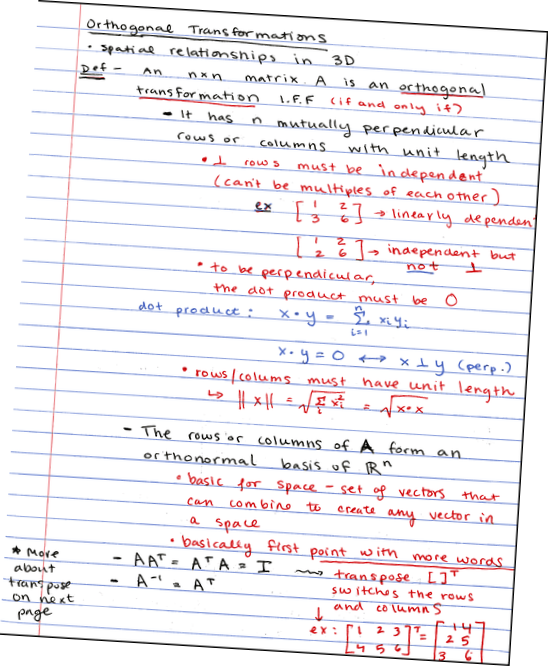 Orthogonal Transformations
• spatial relationships in 3D
Def - An nxn matrix A is an orthogonal
transformation I.F.F (if and only if)
- It has n mutually perpendicular
rows or columns with unit length
• ⊥ rows must be independent
(can't be multiples of each other)
ex [1 2; 3 6] → linearly dependent
[1 2; 2 6] → independent but
not ⊥
• to be perpendicular,
the dot product must be 0
dot product: x • y = Σ_{i=1}^{n} xᵢyᵢ
x • y = 0 ↔ x ⊥ y (perp.)
• rows/colums must have unit length
↳ ||x|| = √(Σᵢ xᵢ²) = √(x•x)
- The rows or columns of A form an
orthonormal basis of ℝⁿ
• basic for space - set of vectors that
can combine to create any vector in
a space
• basically first point with more words
- AAᵀ = AᵀA = I ⟿ transpose []ᵀ
- A⁻¹ = Aᵀ
switches the rows
and columns
↓
ex: [1 2 3; 4 5 6]ᵀ = [1 4; 2 5; 3 6]
* More
about
transpose
on next
page